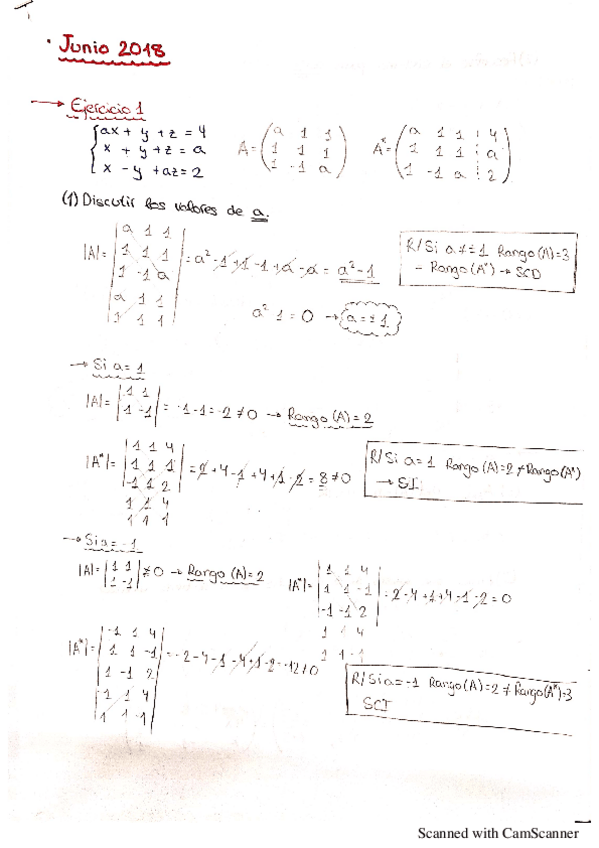 · Junio 2018
→ Ejercicio 1
{ax + y + z = 4
x + y + z = a
x - y + az = 2
A = (a 1 1
1 1 1
1 -1 a)
A* = (a 1 1 ⋮ 4
1 1 1 ⋮ a
1 -1 a ⋮ 2)
(1) Discutir los valores de a.
|A| = |a 1 1
1 1 1
1 -1 a
a 1 1
1 1 1| = a² - 1 + 1 - 1 + a - a = a² - 1
R/ Si a ≠ ± 1 Rango (A) = 3
- Rango (A*) → SCD
a² 1 = 0 → a = ± 1
→ Si a = 1
|A| = |1 1
1 -1| = -1 - 1 = -2 ≠ 0 → Rango (A) = 2
|A*| = |1 1 4
1 1 1
-1 1 2
1 1 4
1 1 1| = 2 + 4 - 1 + 4 + 1 - 2 = 8 ≠ 0
R/ Si a = 1 Rango (A) = 2 ≠ Rango (A*)
→ SI
→ Si a = -1
|A| = |1 1
1 -1| ≠ 0 → Rango (A) = 2
|A*| = |1 1 4
1 1 -1
-1 -1 2
1 1 4
1 1 -1| = 2 - 4 + 1 + 4 - 1 - 2 = 0
|A*| = |-1 1 4
1 1 -1
1 -1 2
-1 1 4
1 1 -1| = -2 - 4 - 1 - 4 + 1 - 2 = -12 ≠ 0
R/ Si a = -1 Rango (A) = 2 ≠ Rango (A*) = 3
SCI
Scanned with CamScanner